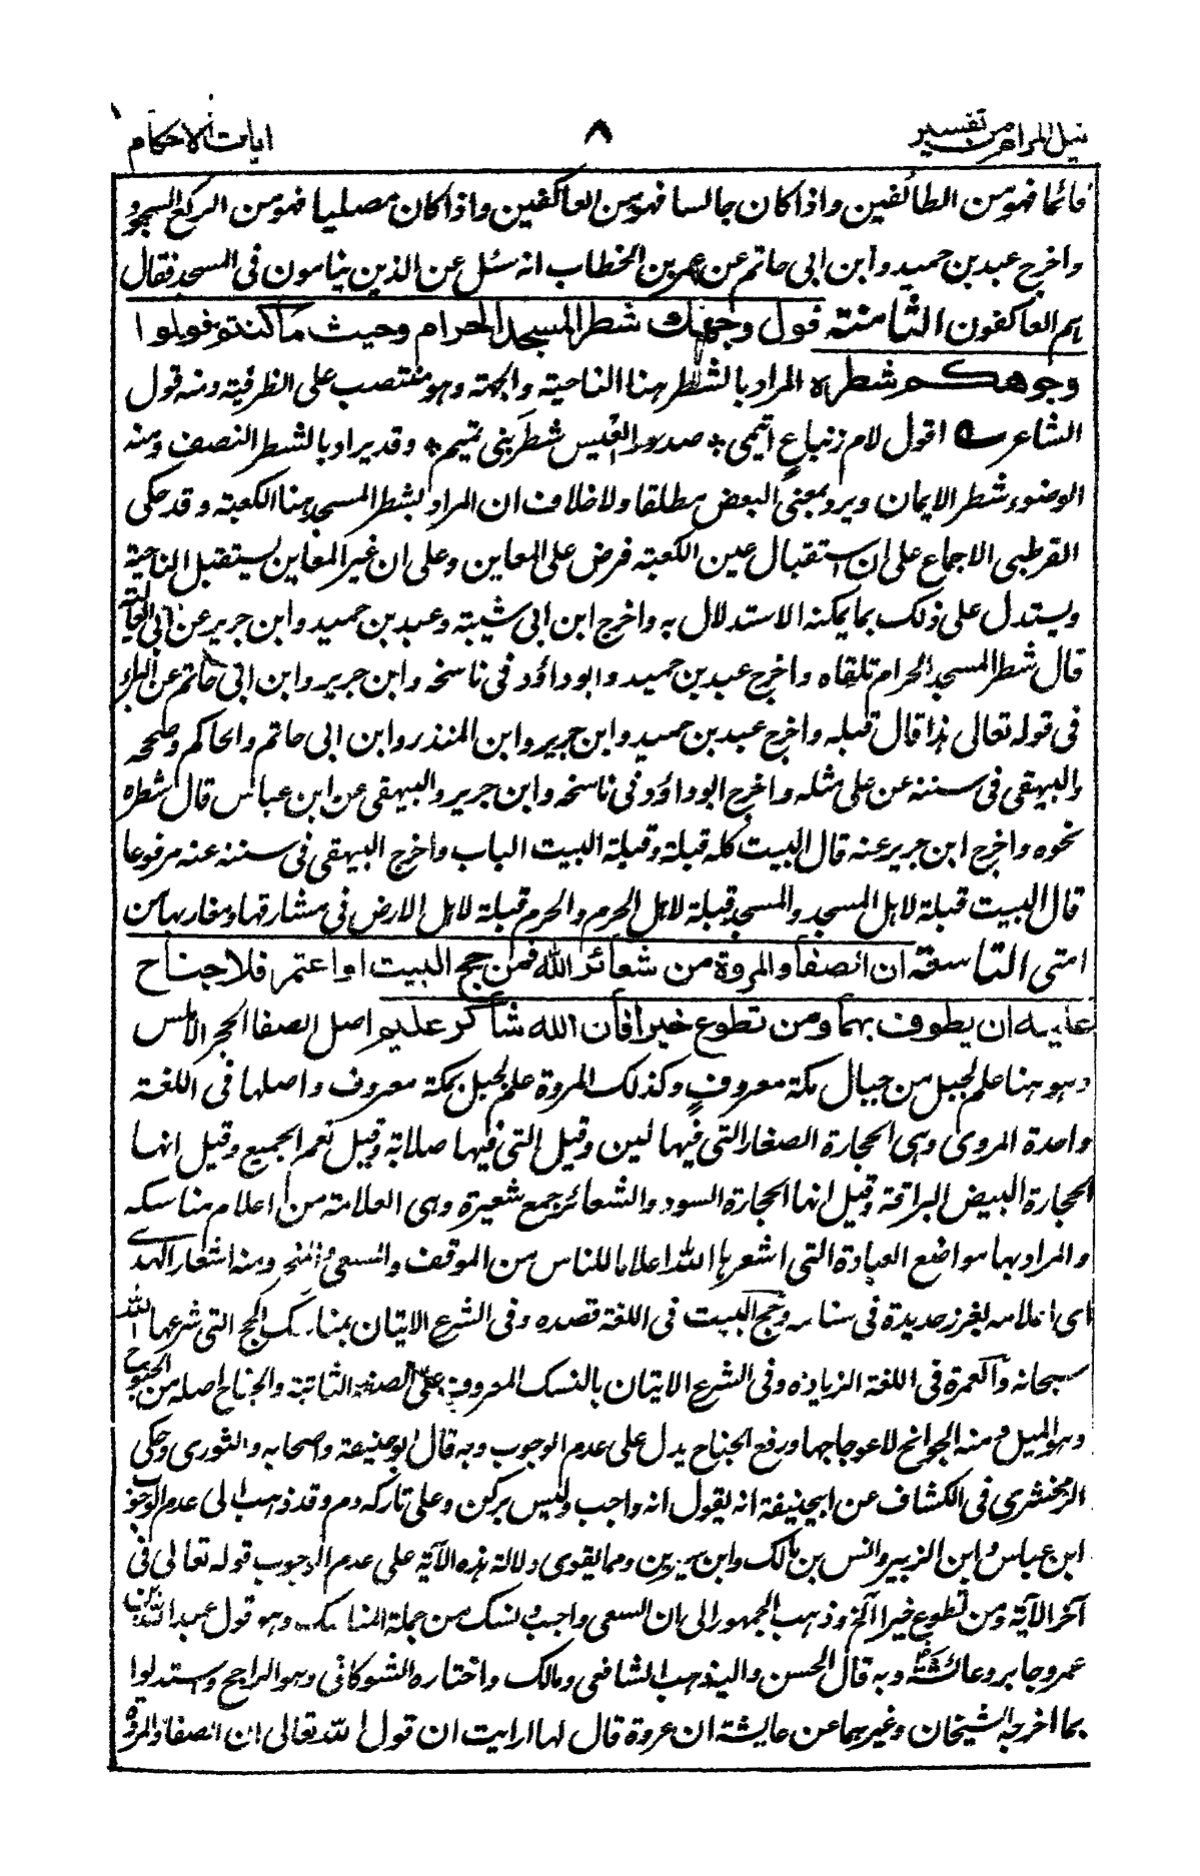 نيل المرام من تفسير
٨
ايات الاحكام
قائما فهو من الطائفين واذا كان جالسا فهو من العاكفين واذا كان مصليا فهو من الركع السجود
واخرج عبد بن حميد وابن ابى حاتم عن عمر بن الخطاب انه سئل عن الذين ينامون فى المسجد فقال
هم العاكفون الثامنة فول وجهك شطر المسجد الحرام وحيث ما كنتم فولوا
وجوهكم شطره المراد بالشطر هنا الناحية والجهة وهو منتصب على الظرفية ومنه قول
الشاعر اقول لام زنباع اقيمى * صدور العيس شطر بنى تميم * وقد يراد بالشطر النصف ومنه
الوضوء شطر الايمان ويرد بمعنى البعض مطلقا ولا خلاف ان المراد بشطر المسجد هنا الكعبة وقد حكى
القرطبى الاجماع على ان استقبال عين الكعبة فرض على المعاين وعلى ان غير المعاين يستقبل الناحية
ويستدل على ذلك بما يمكنه الاستدلال به واخرج ابن ابى شيبة وعبد بن حميد وابن جرير عن ابى العالية
قال شطر المسجد الحرام تلقاه واخرج عبد بن حميد وابو داؤد فى ناسخه وابن جرير وابن ابى حاتم عن البراء
فى قوله تعالى هذا قال قبله واخرج عبد بن حميد وابن جرير وابن المنذر وابن ابى حاتم والحاكم وصححه
والبيهقى فى سننه عن على مثله واخرج ابو داؤد فى ناسخه وابن جرير والبيهقى عن ابن عباس قال شطره
نحوه واخرج ابن جرير عنه قال البيت كله قبلة وقبلة البيت الباب واخرج البيهقى فى سننه عنه مرفوعا
قال البيت قبلة لاهل المسجد والمسجد قبلة لاهل الحرم والحرم قبلة لاهل الارض فى مشارقها ومغاربها من
امتى التاسعة ان الصفا والمروة من شعائر الله فمن حج البيت او اعتمر فلا جناح
عليه ان يطوف بهما ومن تطوع خيرا فان الله شاكر عليم اصل الصفا الحجر الاملس
وهو هنا علم لجبل من جبال مكة معروف وكذلك المروة علم لجبل بمكة معروف واصلها فى اللغة
واحدة المروى وهى الحجارة الصغار التى فيها لين وقيل التى فيها صلابة وقيل تعم الجميع وقيل انها
الحجارة البيض البراقة وقيل انها الحجارة السود والشعائر جمع شعيرة وهى العلامة من اعلام مناسكه
والمراد بها مواضع العبادة التى اشعرها الله اعلاما للناس من الموقف والمسعى والمنحر ومنه اشعار الهدى
اى اعلامه بغرز حديدة فى سنامه وحج البيت فى اللغة قصده وفى الشرع الاتيان بمناسك الحج التى شرعها الله
سبحانه والعمرة فى اللغة الزيادة وفى الشرع الاتيان بالنسك المعروف على الصفة الثابتة والجناح اصله من الجنوح
وهو الميل ومنه الجوانح لاعوجاجها ورفع الجناح يدل على عدم الوجوب وبه قال ابو حنيفة واصحابه والثورى وحكى
الزمخشرى فى الكشاف عن ابيحنيفة انه يقول انه واجب وليس بركن وعلى تاركه دم وقد ذهب الى عدم الوجوب
ابن عباس وابن الزبير وانس بن مالك وابن سيرين ومما يقوى دلالة هذه الآية على عدم الوجوب قوله تعالى فى
آخر الآية ومن تطوع خيرا الخ وذهب الجمهور الى ان السعى واجب ونسك من جملة المناسك وهو قول عبد الله بن
عمر وجابر وعائشة وبه قال الحسن واليه ذهب الشافعى ومالك واختاره الشوكانى وهو الراجح واستدلوا
بما اخرجه الشيخان وغيرهما عن عايشة ان عروة قال لها ارايت ان قول الله تعالى ان الصفا والمروة